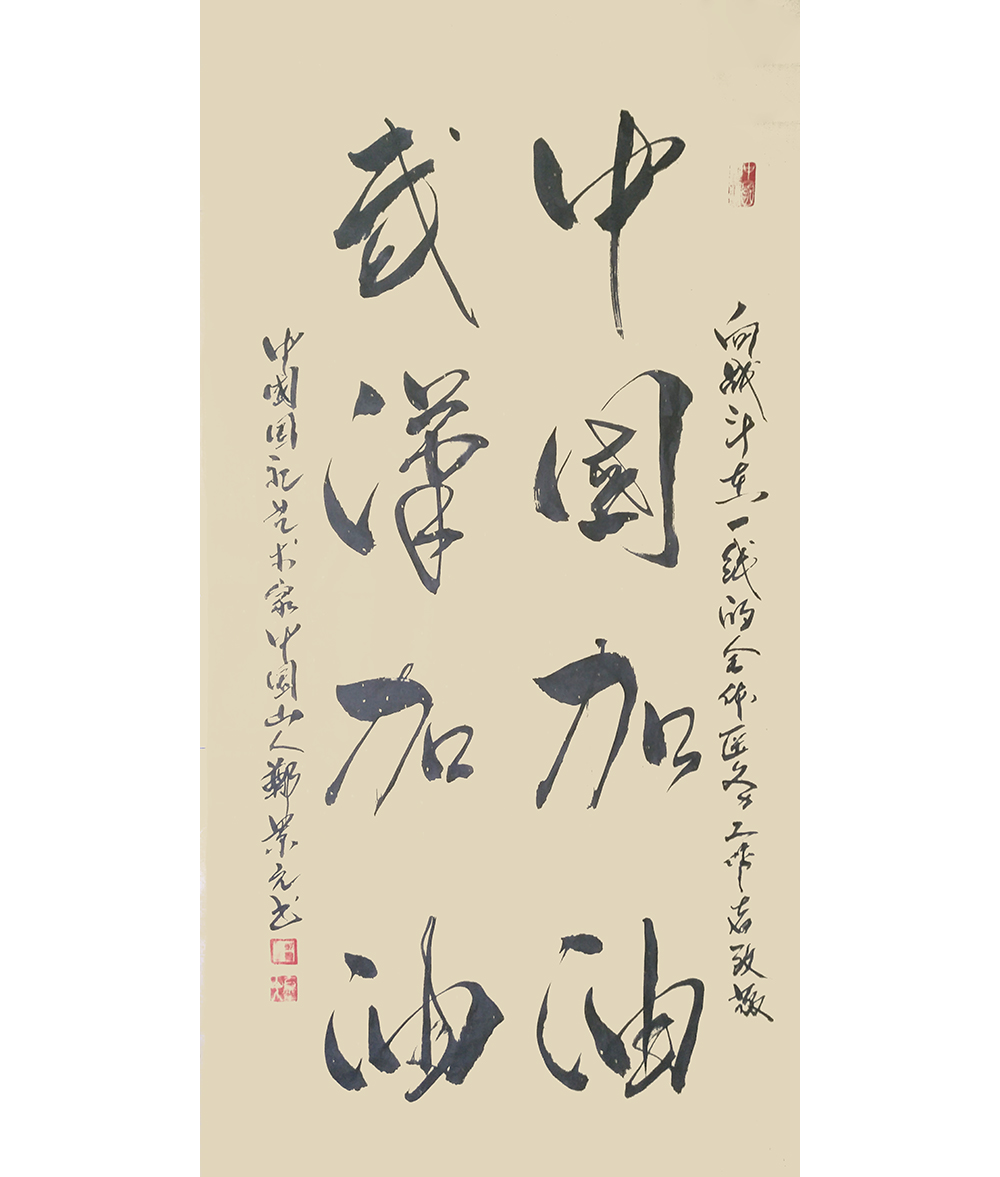 向战斗在一线的全体医务工作者致敬
中國加油
武漢加油
中國国礼艺术家中國山人鄭元书